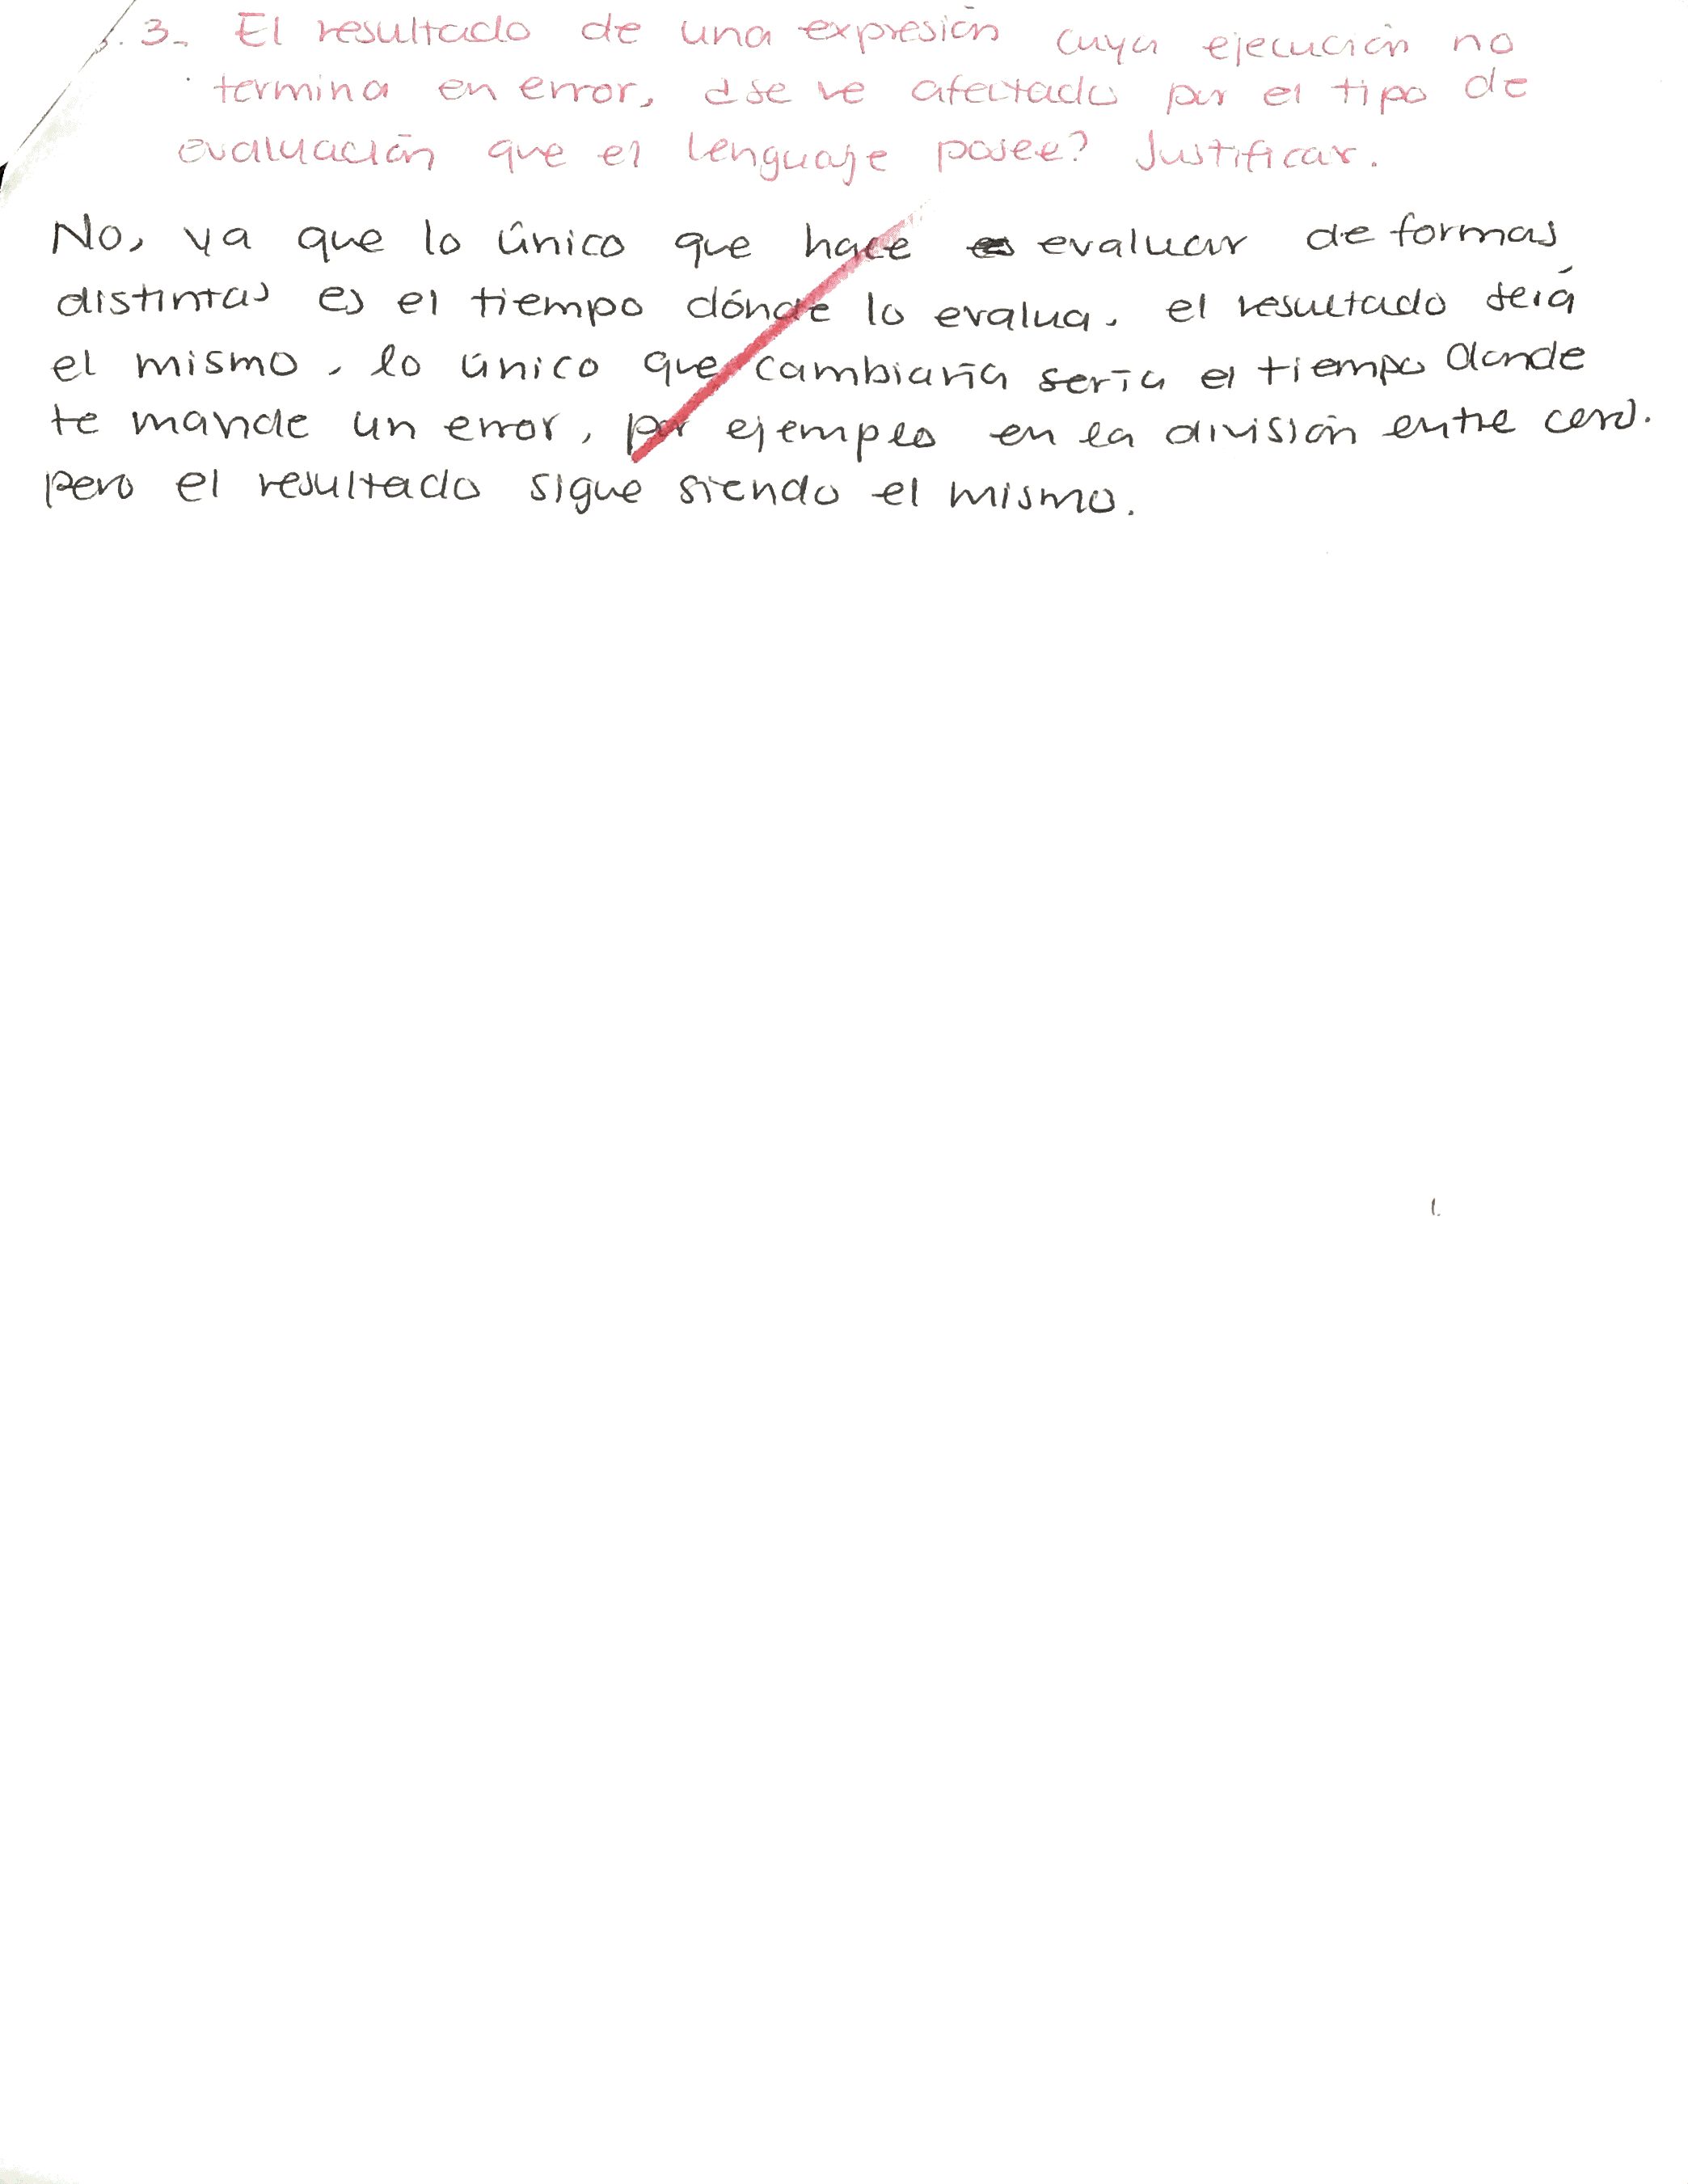 3. El resultado de una expresión cuya ejecución no
termina en error, ¿se ve afectado por el tipo de
evaluación que el lenguaje posee? Justificar.
No, ya que lo único que hace evaluar de formas
distintas es el tiempo dónde lo evalua, el resultado será
el mismo, lo único que cambiaría sería el tiempo donde
te mande un error, por ejemplo en la división entre cero.
pero el resultado sigue siendo el mismo.